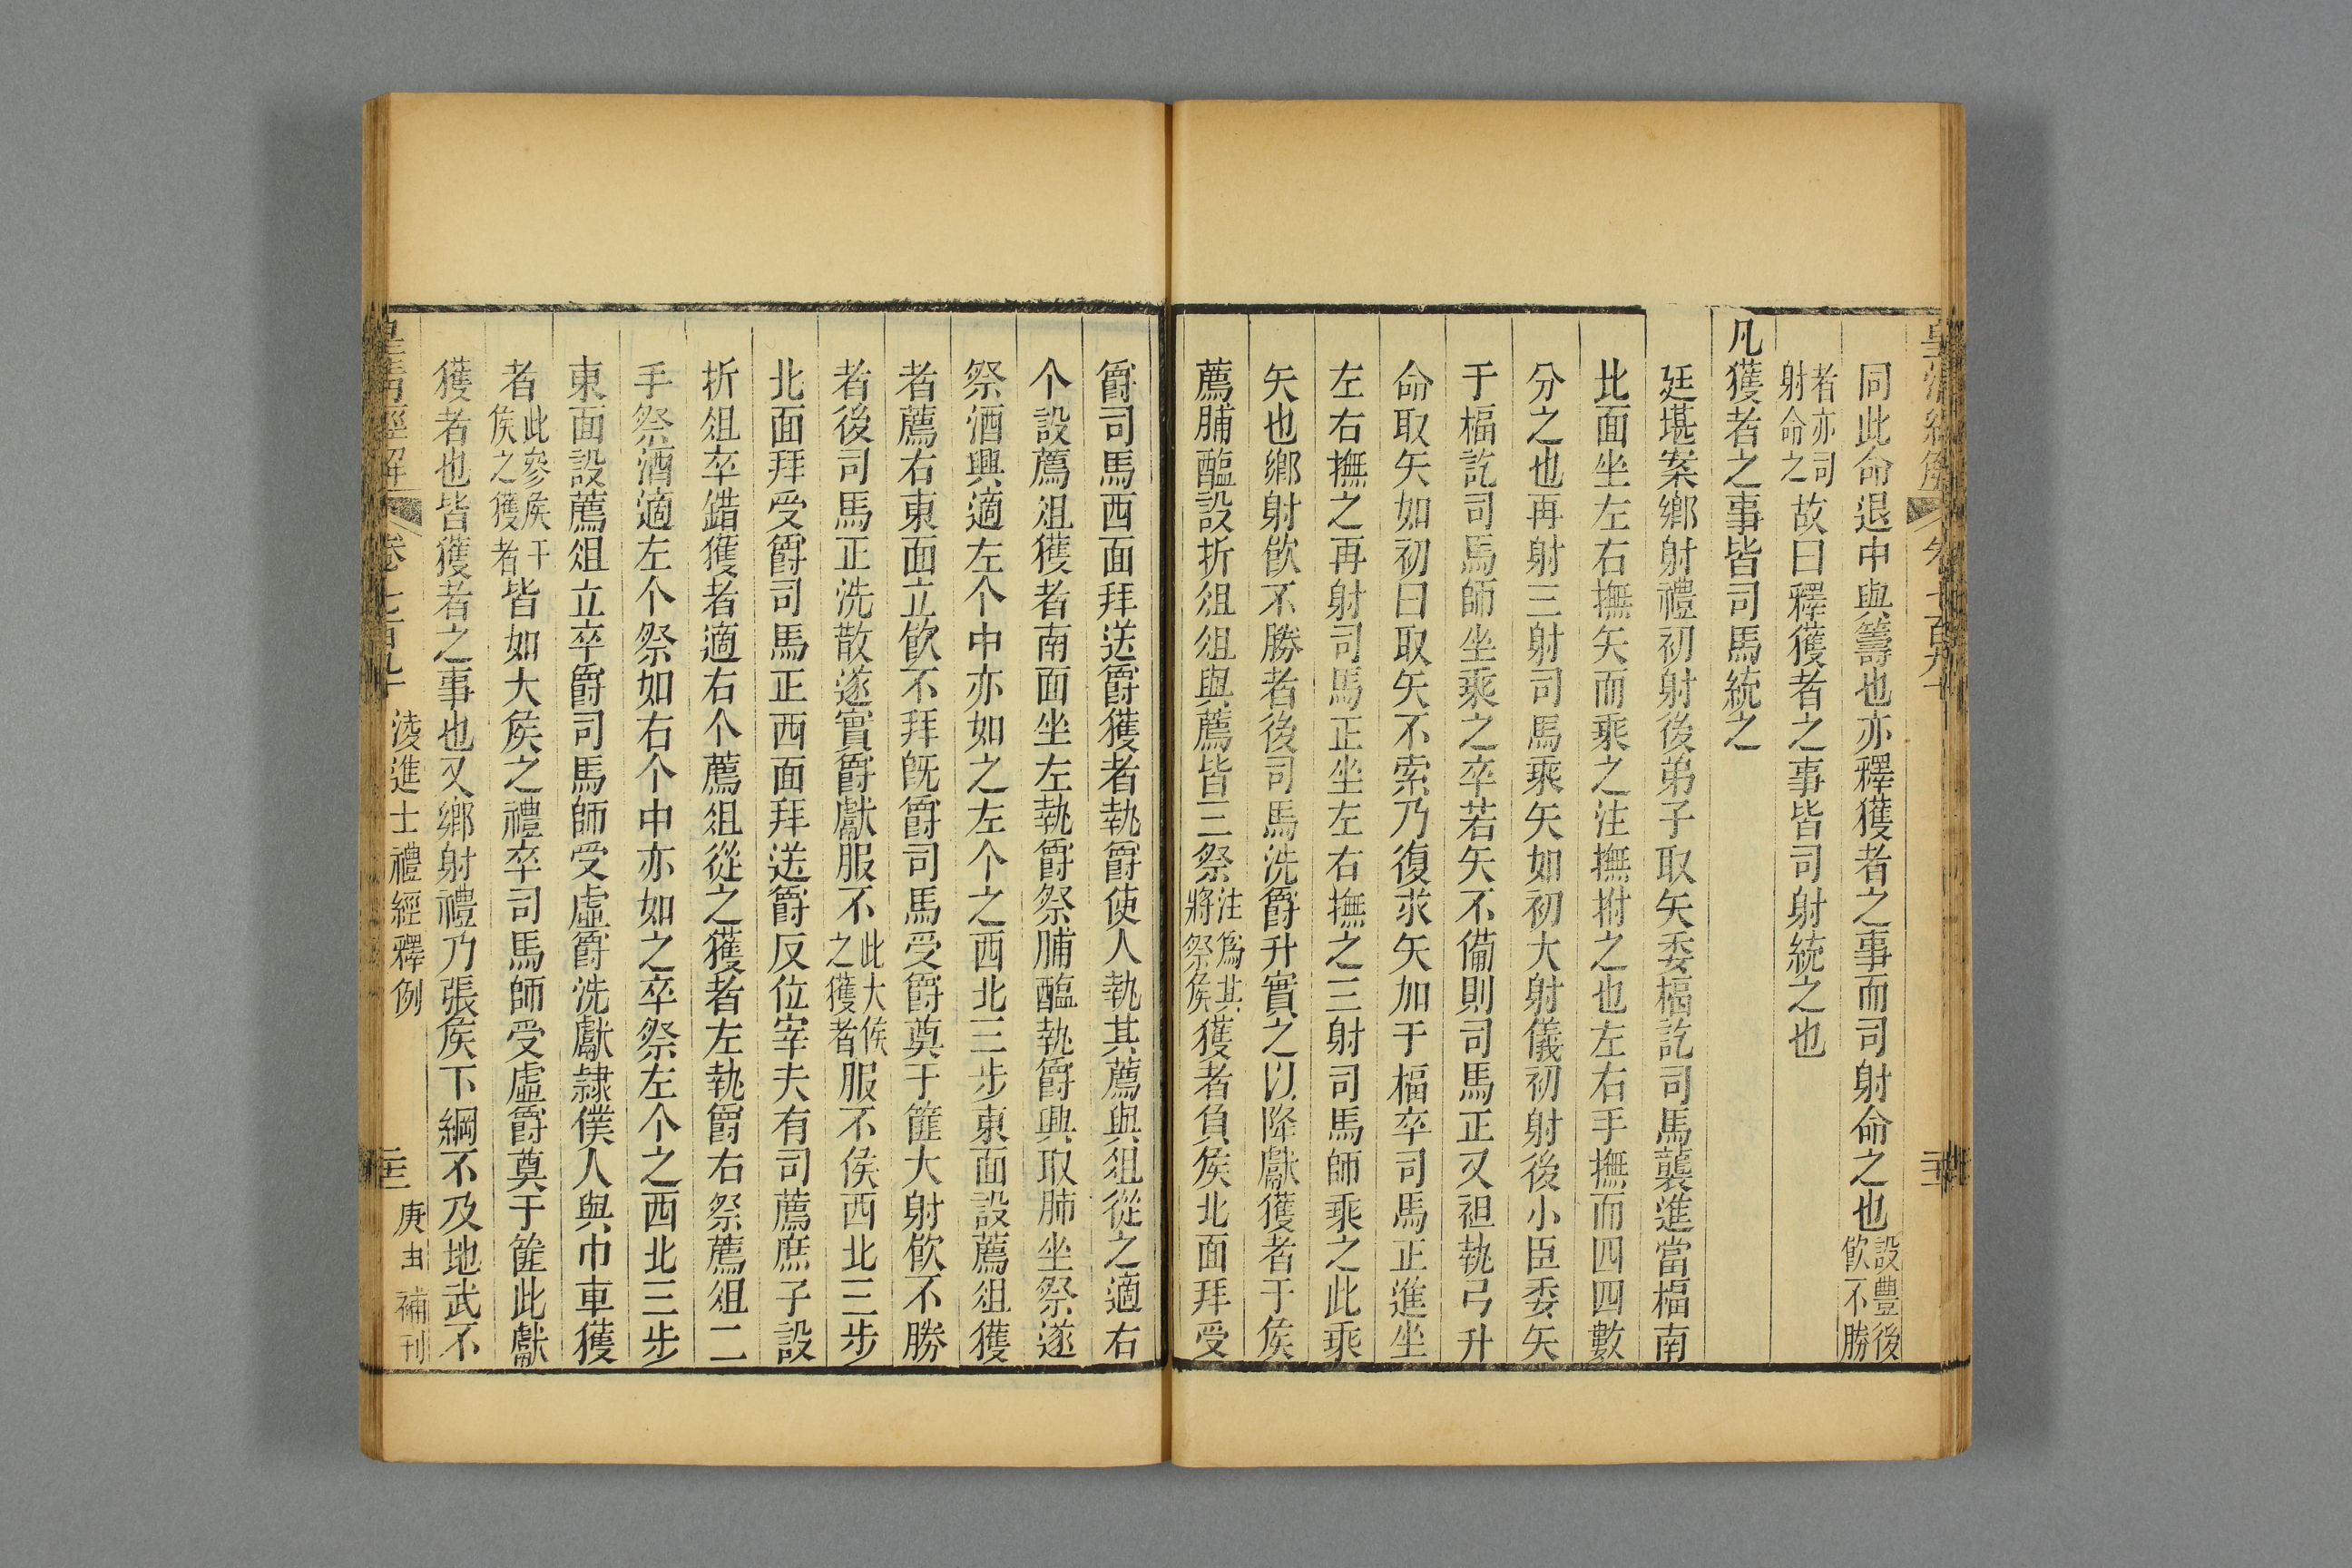 皇清經解 卷七百九十
同此命退中與籌也亦釋獲者之事而司射命之也設豐後飲不勝
者亦司射命之故曰釋獲者之事皆司射統之也
凡獲者之事皆司馬統之
廷堪案鄉射禮初射後弟子取矢委楅訖司馬襲進當楅南
北面坐左右撫矢而乘之注撫拊之也左右手撫而四四數
分之也再射三射司馬乘矢如初大射儀初射後小臣委矢
于楅訖司馬師坐乘之卒若矢不備則司馬正又袒執弓升
命取矢如初曰取矢不索乃復求矢加于楅卒司馬正進坐
左右撫之再射司馬正坐左右撫之三射司馬師乘之此乘
矢也鄉射飲不勝者後司馬洗爵升實之以降獻獲者于侯
薦脯醢設折俎俎與薦皆三祭注爲其將祭侯獲者負侯北面拜受
爵司馬西面拜送爵獲者執爵使人執其薦與俎從之適右
个設薦俎獲者南面坐左執爵祭脯醢執爵興取肺坐祭遂
祭酒興適左个中亦如之左个之西北三步東面設薦俎獲
者薦右東面立飲不拜旣爵司馬受爵奠于篚大射飲不勝
者後司馬正洗散遂實爵獻服不此大侯之獲者服不侯西北三步
北面拜受爵司馬正西面拜送爵反位宰夫有司薦庶子設
折俎卒錯獲者適右个薦俎從之獲者左執爵右祭薦俎二
手祭酒適左个祭如右个中亦如之卒祭左个之西北三步
東面設薦俎立卒爵司馬師受虛爵洗獻隸僕人與巾車獲
者此參侯干侯之獲者皆如大侯之禮卒司馬師受虛爵奠于篚此獻
獲者也皆獲者之事也又鄉射禮乃張侯下綱不及地武不
皇清經解 卷七百九十 淩進士禮經釋例 庚申補刊